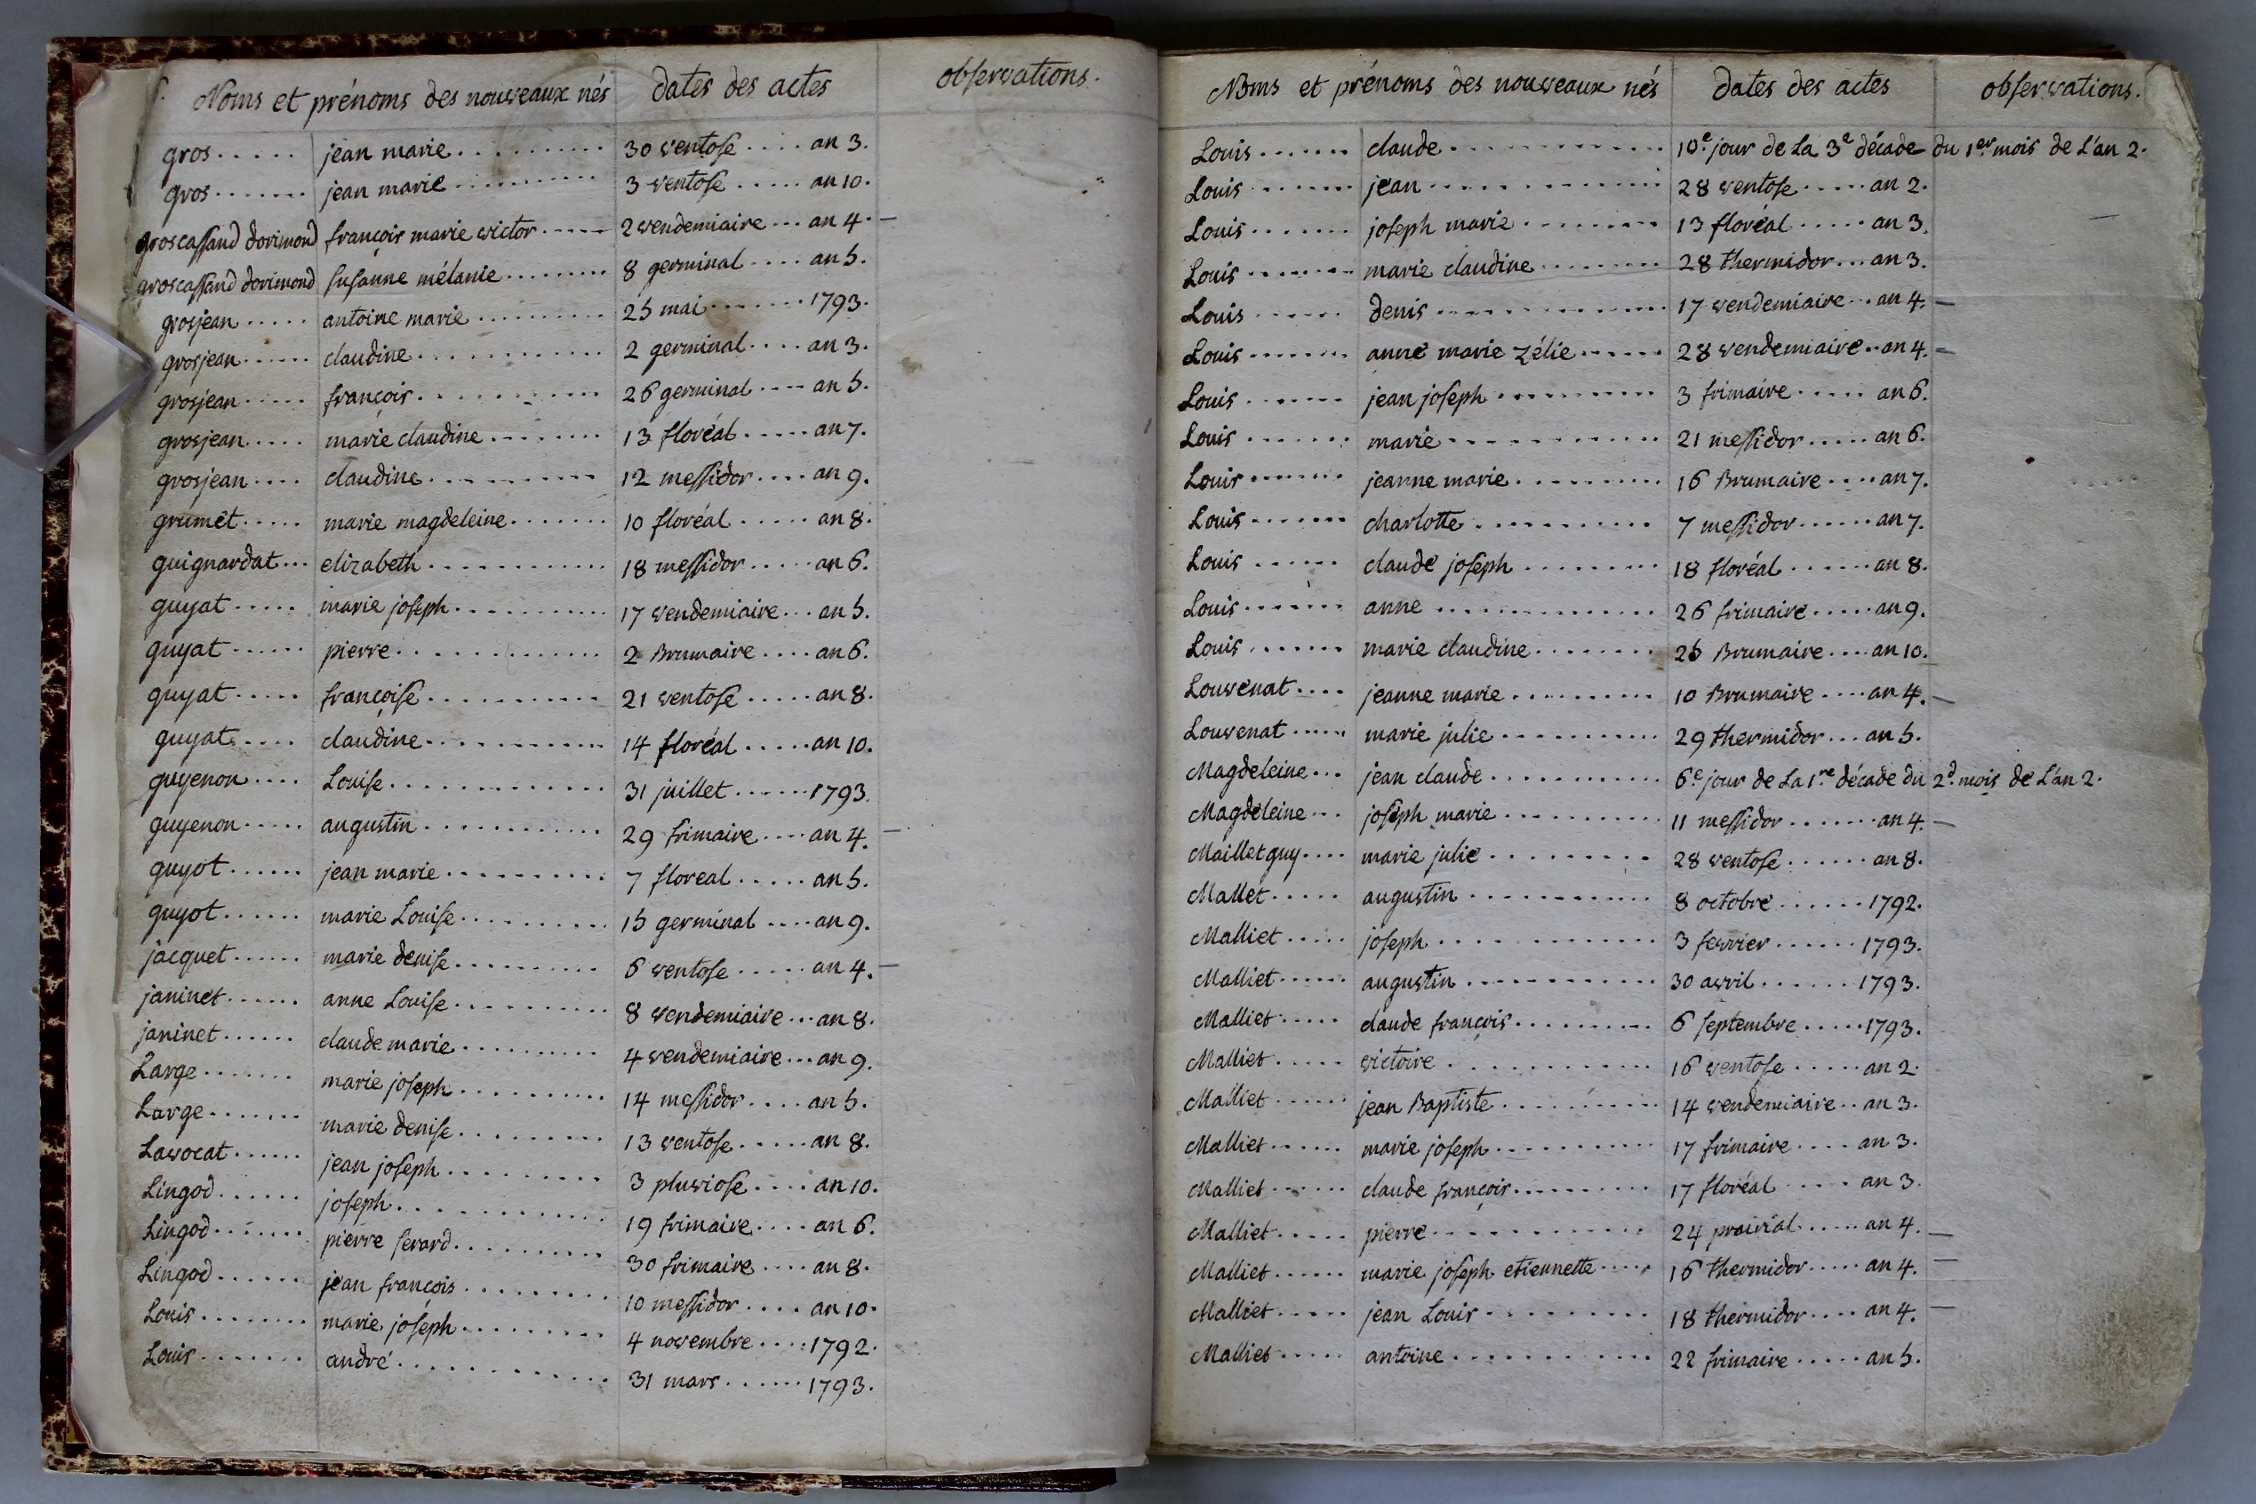 Noms et prénoms des nouveaux nés dates des actes observations.
gros jean marie 30 ventose an 3.
gros jean marie 3 ventose an 10.
groscassand dorimond françois marie victor 2 vendemiaire an 4. —
groscassand dorimond susanne mélanie 8 germinal an 5.
grosjean antoine marie 25 mai 1793.
grosjean claudine 2 germinal an 3.
grosjean françois 26 germinal an 5.
grosjean marie claudine 13 floréal an 7.
grosjean claudine 12 messidor an 9.
grumet marie magdeleine 10 floréal an 8.
guignardat elizabeth 18 messidor an 6.
guyat marie joseph 17 vendemiaire an 5.
guyat pierre 2 Brumaire an 6.
guyat françoise 21 ventose an 8.
guyat claudine 14 floréal an 10.
guyenon Louise 31 juillet 1793.
guyenon augustin 29 frimaire an 4. —
guyot jean marie 7 floreal an 5.
guyot marie Louise 15 germinal an 9.
jacquet marie denise 6 ventose an 4. —
janinet anne Louise 8 vendemiaire an 8.
janinet claude marie 4 vendemiaire an 9.
Large marie joseph 14 messidor an 5.
Large marie denise 13 ventose an 8.
Lavocat jean joseph 3 pluviose an 10.
Lingod joseph 19 frimaire an 6.
Lingod pierre ferard 30 frimaire an 8.
Lingod jean françois 10 messidor an 10.
Louis marie joseph 4 novembre 1792.
Louis andré 31 mars 1793.
Noms et prénoms des nouveaux nés dates des actes observations.
Louis claude 10e jour de La 3e décade du 1er mois de L'an 2.
Louis jean 28 ventose an 2.
Louis joseph marie 13 floréal an 3.
Louis marie claudine 28 thermidor an 3.
Louis denis 17 vendemiaire an 4. —
Louis anne marie zélie 28 vendemiaire an 4. —
Louis jean joseph 3 frimaire an 6.
Louis marie 21 messidor an 6.
Louis jeanne marie 16 Brumaire an 7.
Louis charlotte 7 messidor an 7.
Louis claude joseph 18 floréal an 8.
Louis anne 26 frimaire an 9.
Louis marie claudine 25 Brumaire an 10.
Louvenat jeanne marie 10 Brumaire an 4. —
Louvenat marie julie 29 thermidor an 5.
Magdeleine jean claude 6e jour de La 1re décade du 2d mois de L'an 2.
Magdeleine joseph marie 11 messidor an 4. —
Mailletguy marie julie 28 ventose an 8.
Mallet augustin 8 octobre 1792.
Malliet joseph 3 fevrier 1793.
Malliet augustin 30 avril 1793.
Malliet claude françois 6 septembre 1793.
Malliet victoire 16 ventose an 2.
Malliet jean Baptiste 14 vendemiaire an 3.
Malliet marie joseph 17 frimaire an 3.
Malliet claude françois 17 floréal an 3.
Malliet pierre 24 prairial an 4. —
Malliet marie joseph etiennette 16 thermidor an 4. —
Malliet jean Louis 18 thermidor an 4. —
Malliet antoine 22 frimaire an 5.